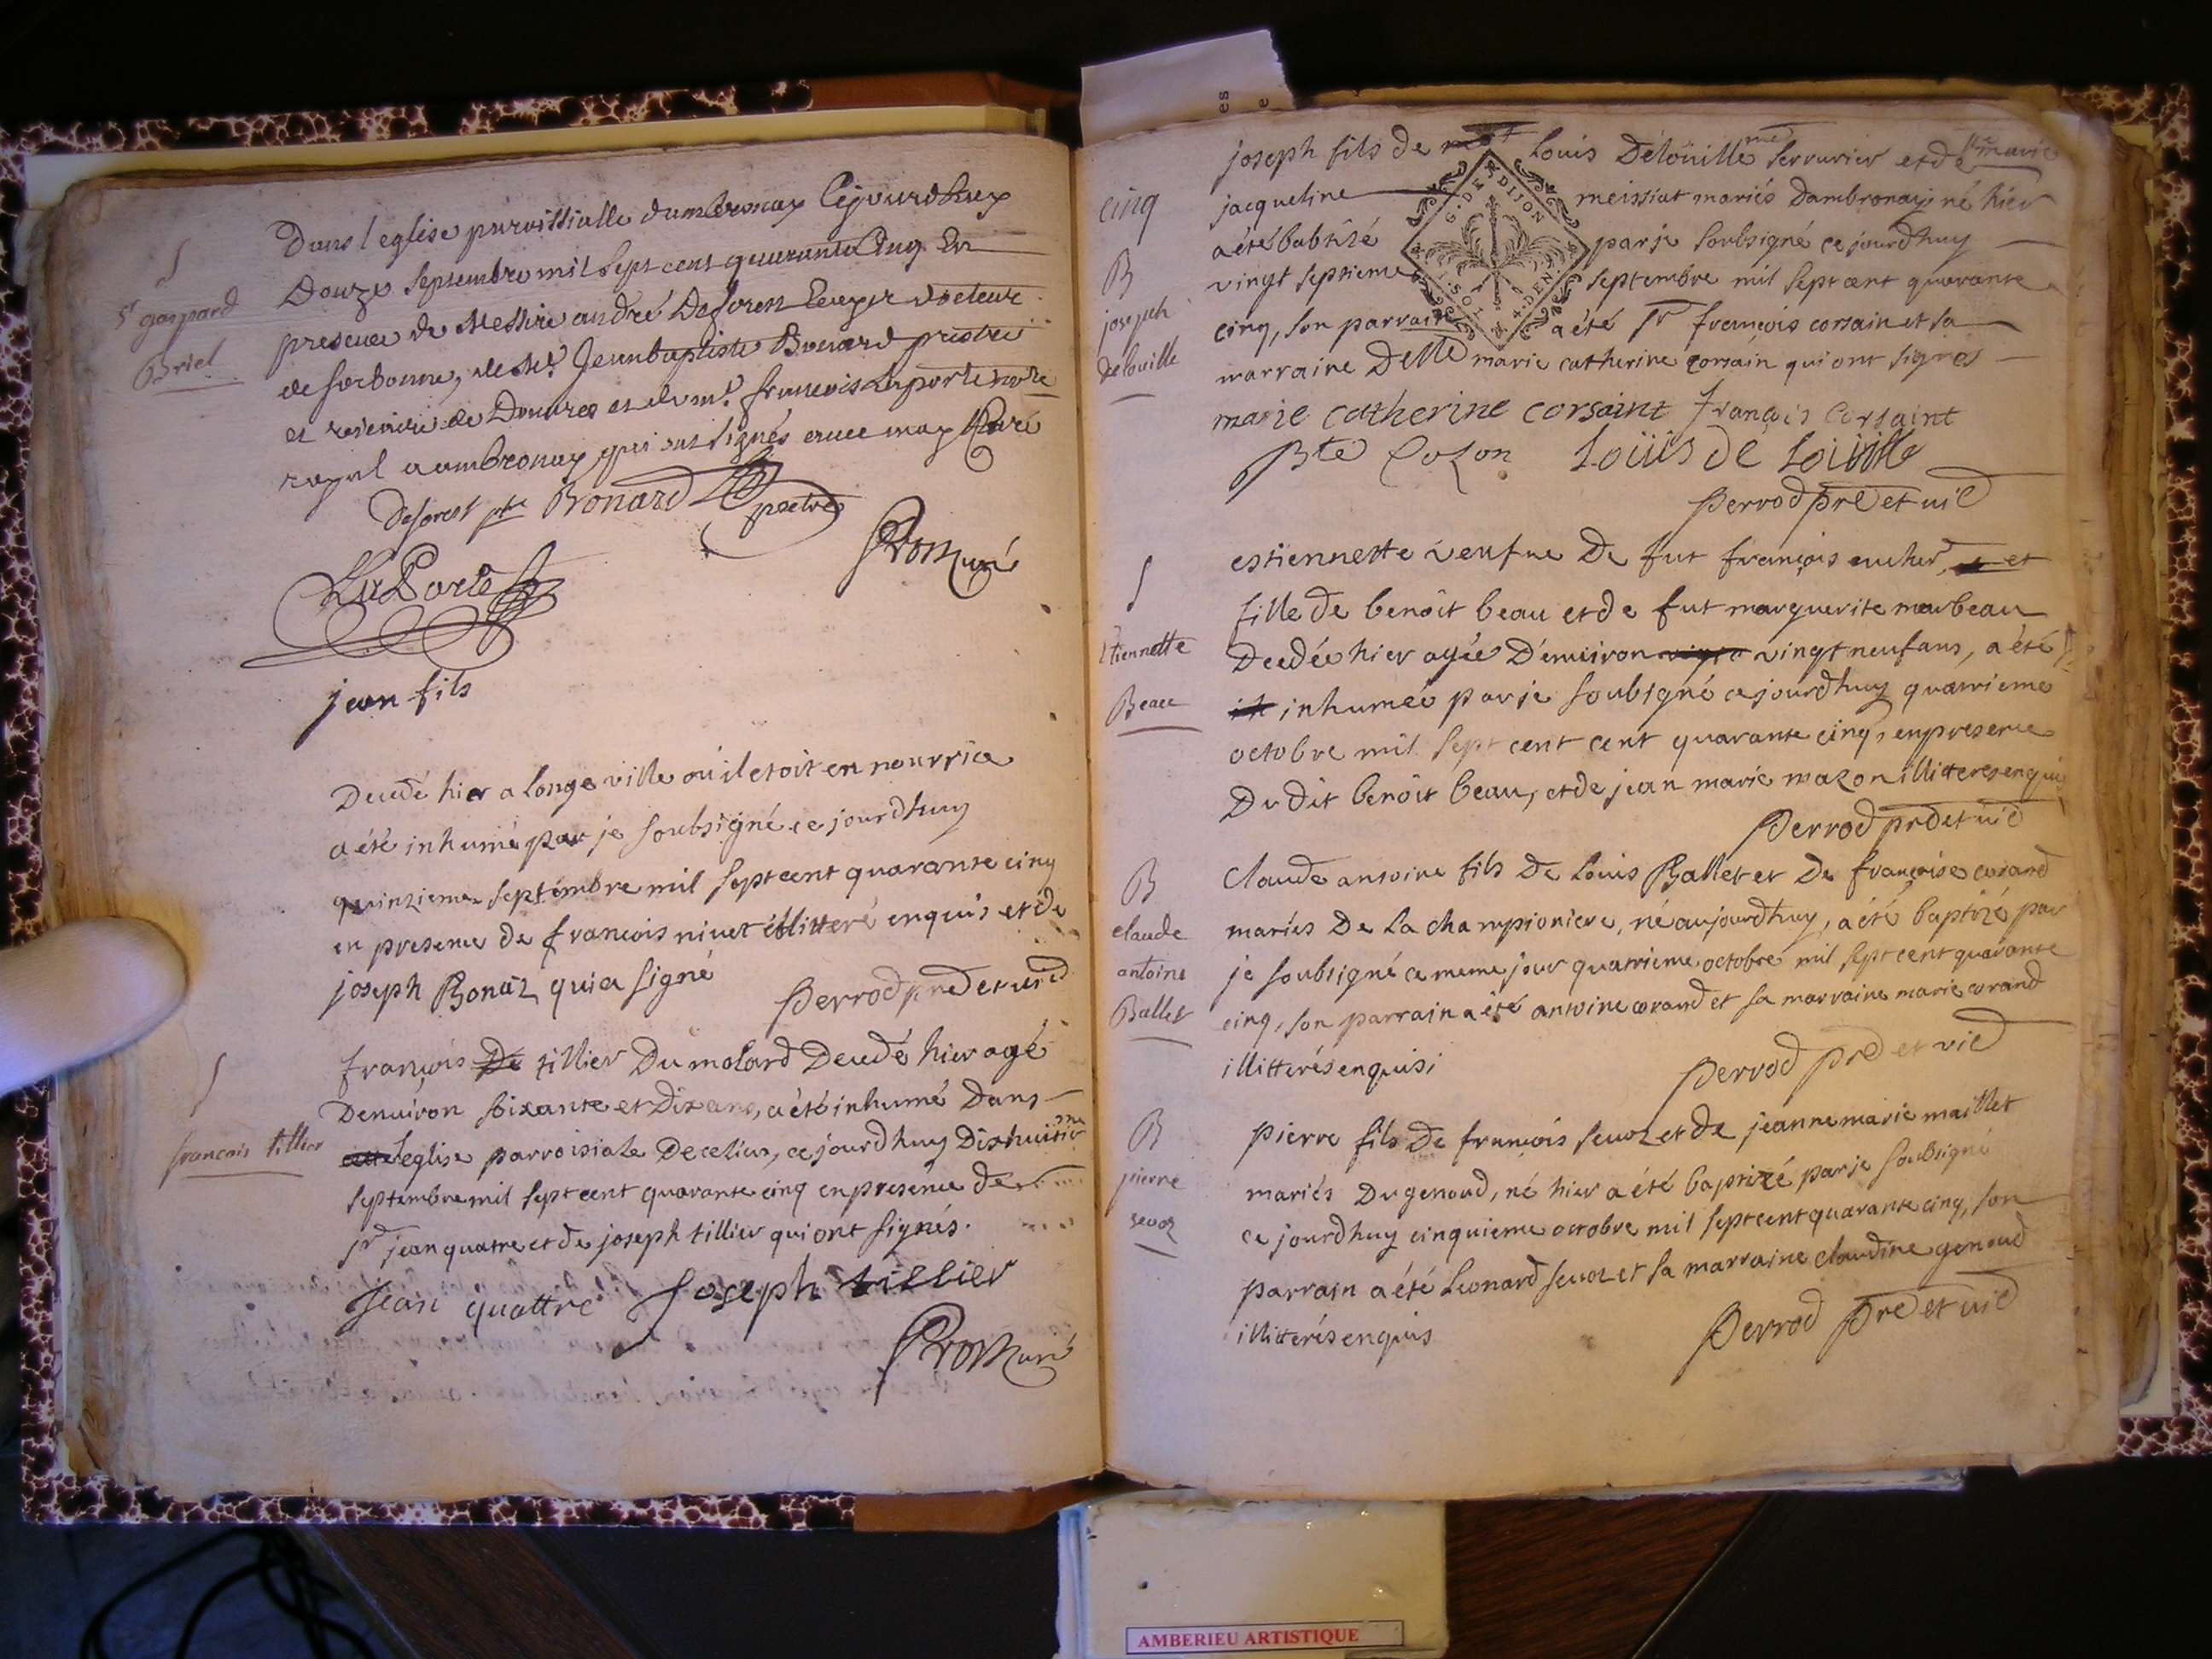 S
sr gaspard
Briel
Dans l'eglise paroissialle dambronay Cejourdhuy
Douze septembre mil sept cent quarante Cinq En
presence de Messire andré Deforest docteur
de sorbonne, de Mr. Jeanbaptiste Bonard prestre
et de mr. francois Laporte notre
royal a ambronay qui ont signés avec moy Curé
deforest ptre Bonard prêtre
LaPorte
curé
jean fils
Decedé hier a longeville où il etoit en nourrice
a été inhumé par je soubsigné ce jourdhuy
quinzieme septembre mil sept cent quarante cinq
en presence de francois nivet illitteré enquis et de
joseph Bonaz qui a signé
Perrod pre et vic
S
francois tillier
françois De tillier Du molard Decedé hier agé
Denviron soixante et Dix ans, a été inhumé Dans
cette l'eglise parroisiale De celieu, ce jourdhuy Dixhuitieme
septembre mil sept cent quarante cinq en presence de
sr jean quatre et de joseph tillier qui ont signés.
Jean quattre Joseph tillier
curé
cinq
B
joseph
delouille
joseph fils de Louis Deloüille me serrurier et de marie
jacqueline meissiat mariés Dambronay né hier
a été babtizé par je soubsigné ce jourdhuy
vingt septieme septembre mil sept cent quarante
cinq, son parrain a été sr françois corsain et sa
marraine Delle marie catherine corsain qui ont signés
G. DE DIJON
4. DEN.
marie catherine corsaint françois Corsaint
Bte Cozon Loüis de Loüille
Perrod pre et vic
S
Etiennette
Beau
estiennette veufve De fut françois eucher, et
fille de benoît beau et de fut marguerite marbeau
Decedée hier agée D'environ vingt vingt neuf ans, a été
inhumée par je soubsigné ce jourdhuy quatrieme
octobre mil sept cent cent quarante cinq, en presence
Du dit benoît beau, et de jean marie mazon illitteres enquis
Perrod pre et vic
B
claude
antoine
Ballet
Claude antoine fils De Louis Ballet et De françoise corand
mariés De La championiere, né aujourdhuy, a été baptizé par
je soubsigné ce meme jour quatrieme octobre mil sept cent quarante
cinq, son parrain a été antoine corand et sa marraine marie corand
illitterés enquis
Perrod pre et vic
B
pierre
sevoz
pierre fils De françois sevoz et de jeanne marie maillet
mariés Du genoud, né hier a été baptizé par je soubsigné
ce jourdhuy cinquieme octobre mil sept cent quarante cinq, son
parrain a été Leonard sevoz et sa marraine claudine genoud
illitterés enquis
Perrod pre et vic
AMBERIEU ARTISTIQUE